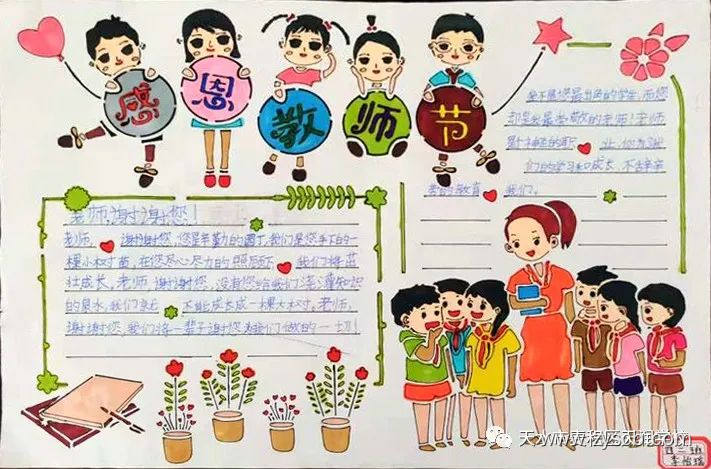 感恩教师节
我不是您最出色的学生,而您
却是我最崇敬的老师!老师
是个神圣的职 业,您为了我
们的学习和成长,不辞辛
的教育 我们。
老师,谢谢您!
老师, 谢谢您,您是辛勤的园丁,我们是您手下的一
棵小树苗,在您尽心尽力的照顾下 我们将茁
壮成长,老师 谢谢您,没有您给我们浇灌知识
的泉水,我们就 不能成长成一棵大树,老师,
谢谢您,我们将一辈子谢您为我们做的一切!